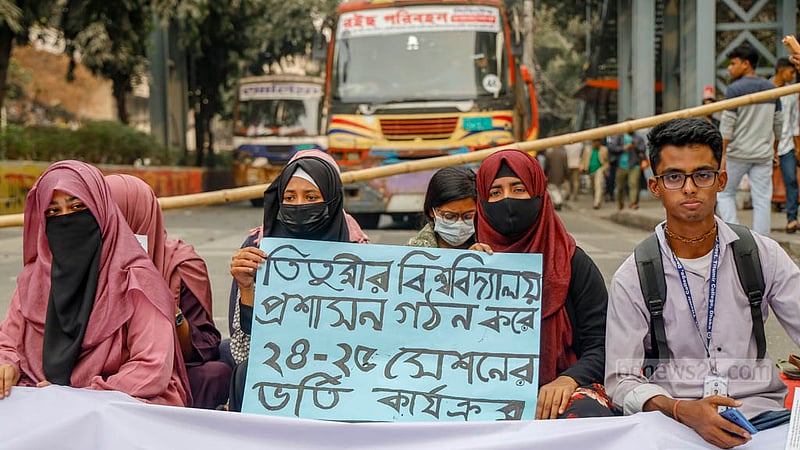 রইছ পরিবহন
তিতুমীর বিশ্ববিদ্যালয়
প্রশাসন গঠন করে
২৪-২৫ সেশনের
ভর্তি কার্যক্রম
College, Dhaka